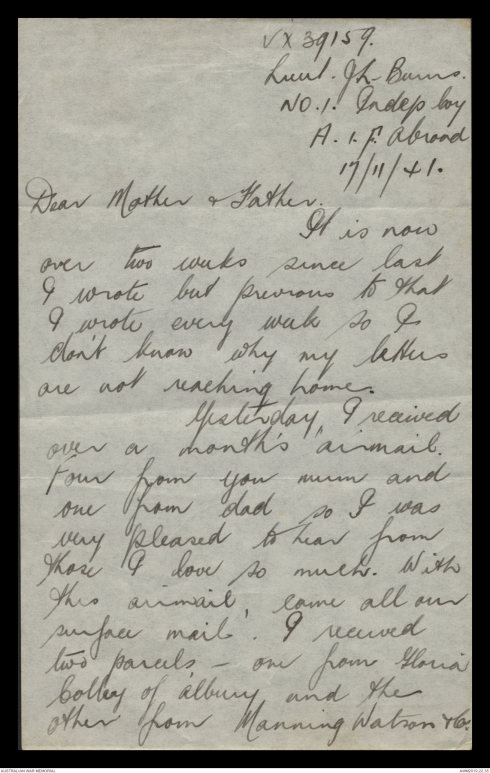 VX 39159.
Lieut. J L. Burns.
NO. 1. Indep Coy
A. I. F. Abroad
17/11/41.
Dear Mother & Father.
It is now
over two weeks since last
I wrote but previous to that
I wrote every week so I
don't know why my letters
are not reaching home.
Yesterday, I received
over a month's 'airmail.
Four from you mum and
one from dad so I was
very pleased to hear from
those I love so much. With
this airmail, came all our
surface mail'. I received
two parcels - one from Gloria
Colley of albury and the
other from Manning Watson & Co.
AUSTRALIAN WAR MEMORIAL